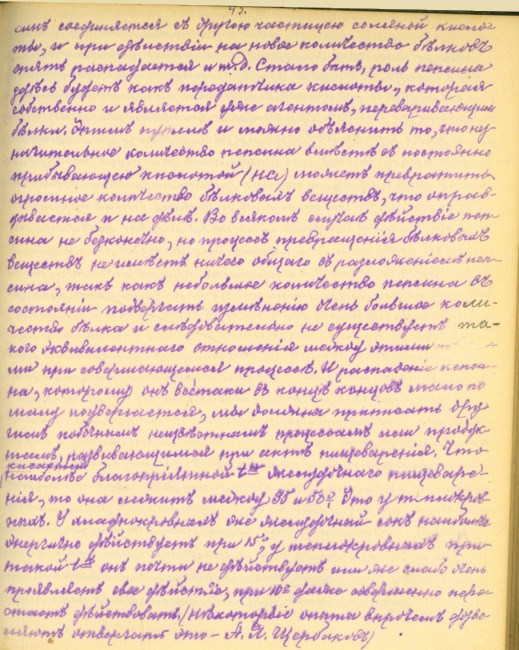 43.
синъ соединяется съ другою частицею соляной кисло-
ты, и при дѣйствіи на новое количество бѣлковъ
опять распадается и т.д. Стало быть, роль пепсина
здѣсь будетъ какъ передатчика кислоты, которая
собственно и является уже агентомъ, переваривающимъ
бѣлки. Этимъ путемъ и можно объяснить то, что не-
значительное количество пепсина вмѣстѣ съ постоянно
прибывающею кислотой (HCl) можетъ превратить
огромное количество бѣлковыхъ веществъ, что оправ-
дывается и на дѣлѣ. Во всякомъ случаѣ дѣйствіе пеп-
сина не безконечно, но процессъ превращенія бѣлковыхъ
веществъ не имѣетъ ничего общаго съ разложеніемъ пеп-
сина, такъ какъ небольшое количество пепсина въ
состояніи подвергать измѣненію очень большое коли-
чество бѣлка и слѣдовательно не существуетъ та-
кого эквивалентнаго отношенія между этими
ми при совершающемся процессѣ. И распаденіе пепси-
на, которому онъ всетаки въ концѣ концовъ мало по
малу подвергается, мы должны приписать дру-
гимъ побочнымъ неизвѣстнымъ процессамъ или продук-
тамъ, развивающимся при актѣ пищеваренія. Что
касается
наиболѣе благопріятной t<sup>ы</sup> желудочнаго пищеваре-
нія, то она лежитъ между 35 и 50°. Это у теплокров-
ныхъ. У хладнокровныхъ же желудочный сокъ наиболѣе
энергично дѣйствуетъ при 15°, у теплокровныхъ при
такой t<sup>ѣ</sup> онъ почти не дѣйствуетъ или же слабо очень
проявляетъ свое дѣйствіе, при 10° даже совершенно пере-
стаетъ дѣйствовать. (нѣкоторые опыты впрочемъ дозво-
ляютъ отвергать это – А. Я. Щербаковъ)